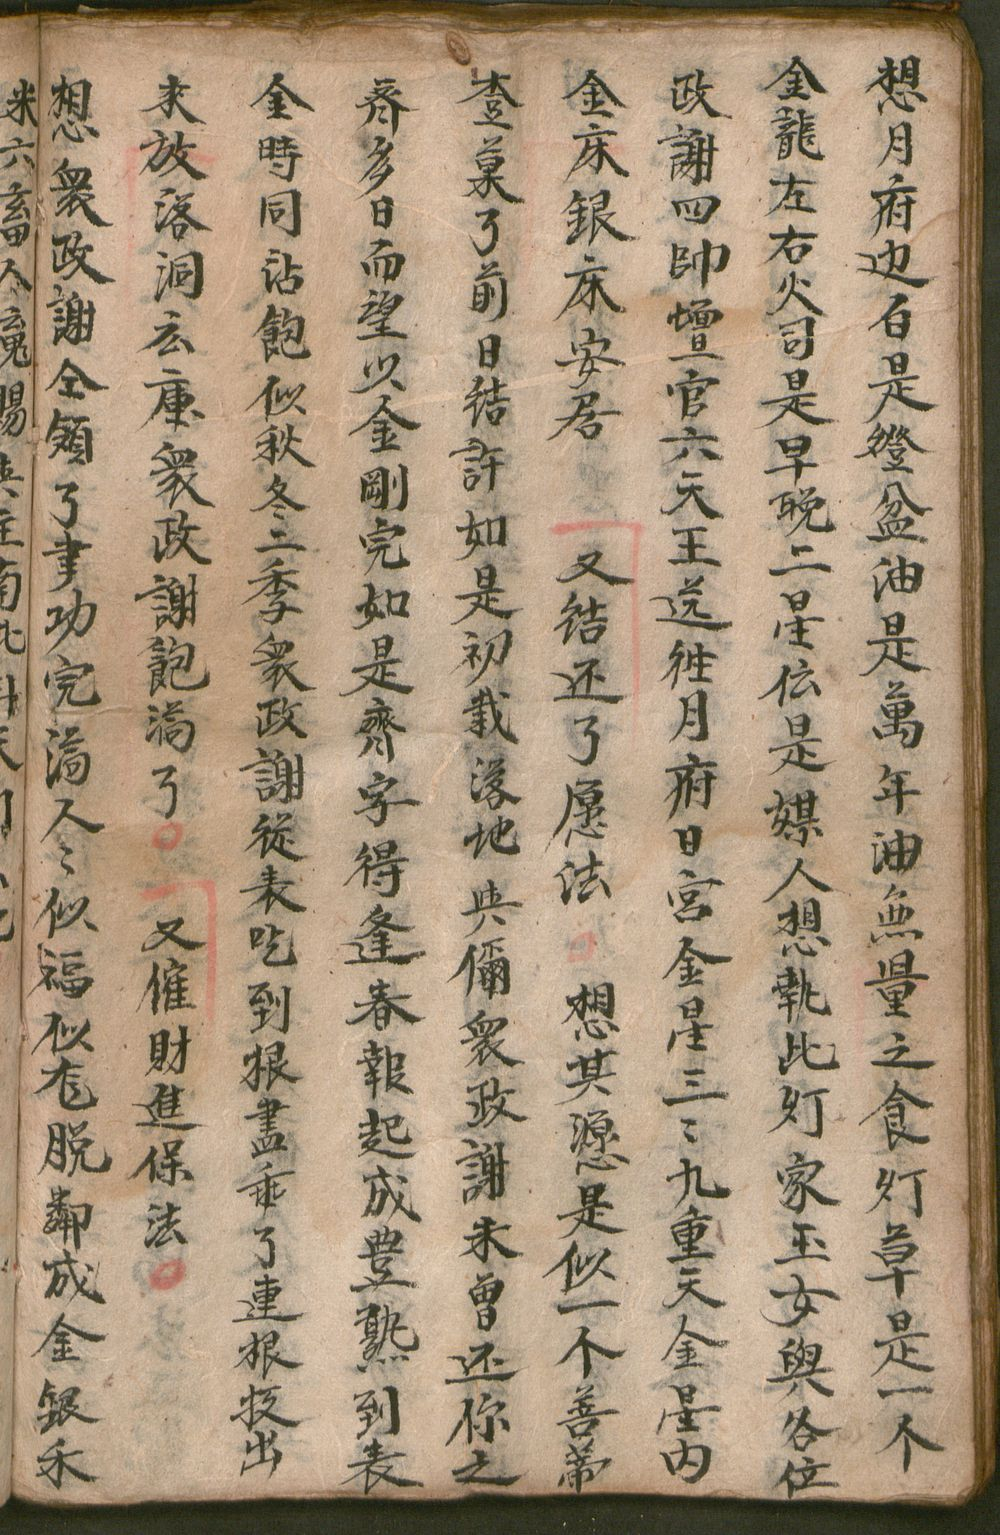 想月府边白是燈盆油是萬年油無量之食灯草是一个
金龍左右火司是早晚二星伝是媒人想執此灯家玉女與各位
政謝四帥壇官六天王送徃月府日宮金星三〻九重天金星内
金床銀床安居　又結还了愿法　想其愿是似一个善蒂
查菓了前日结許如是初栽落地共你衆政謝未曽还你之
齐多日而望以金剛完如是齊字得逢春報起成豊熟到表
金時同沾飽似秋冬二季衆政謝從表吃到根盡乖了連根扳出
来放落洞玄庫衆政謝飽満了　又催財進保法
想衆政謝全領了事功完満人〻似福似尨脱鄰成金銀禾
米六畜人